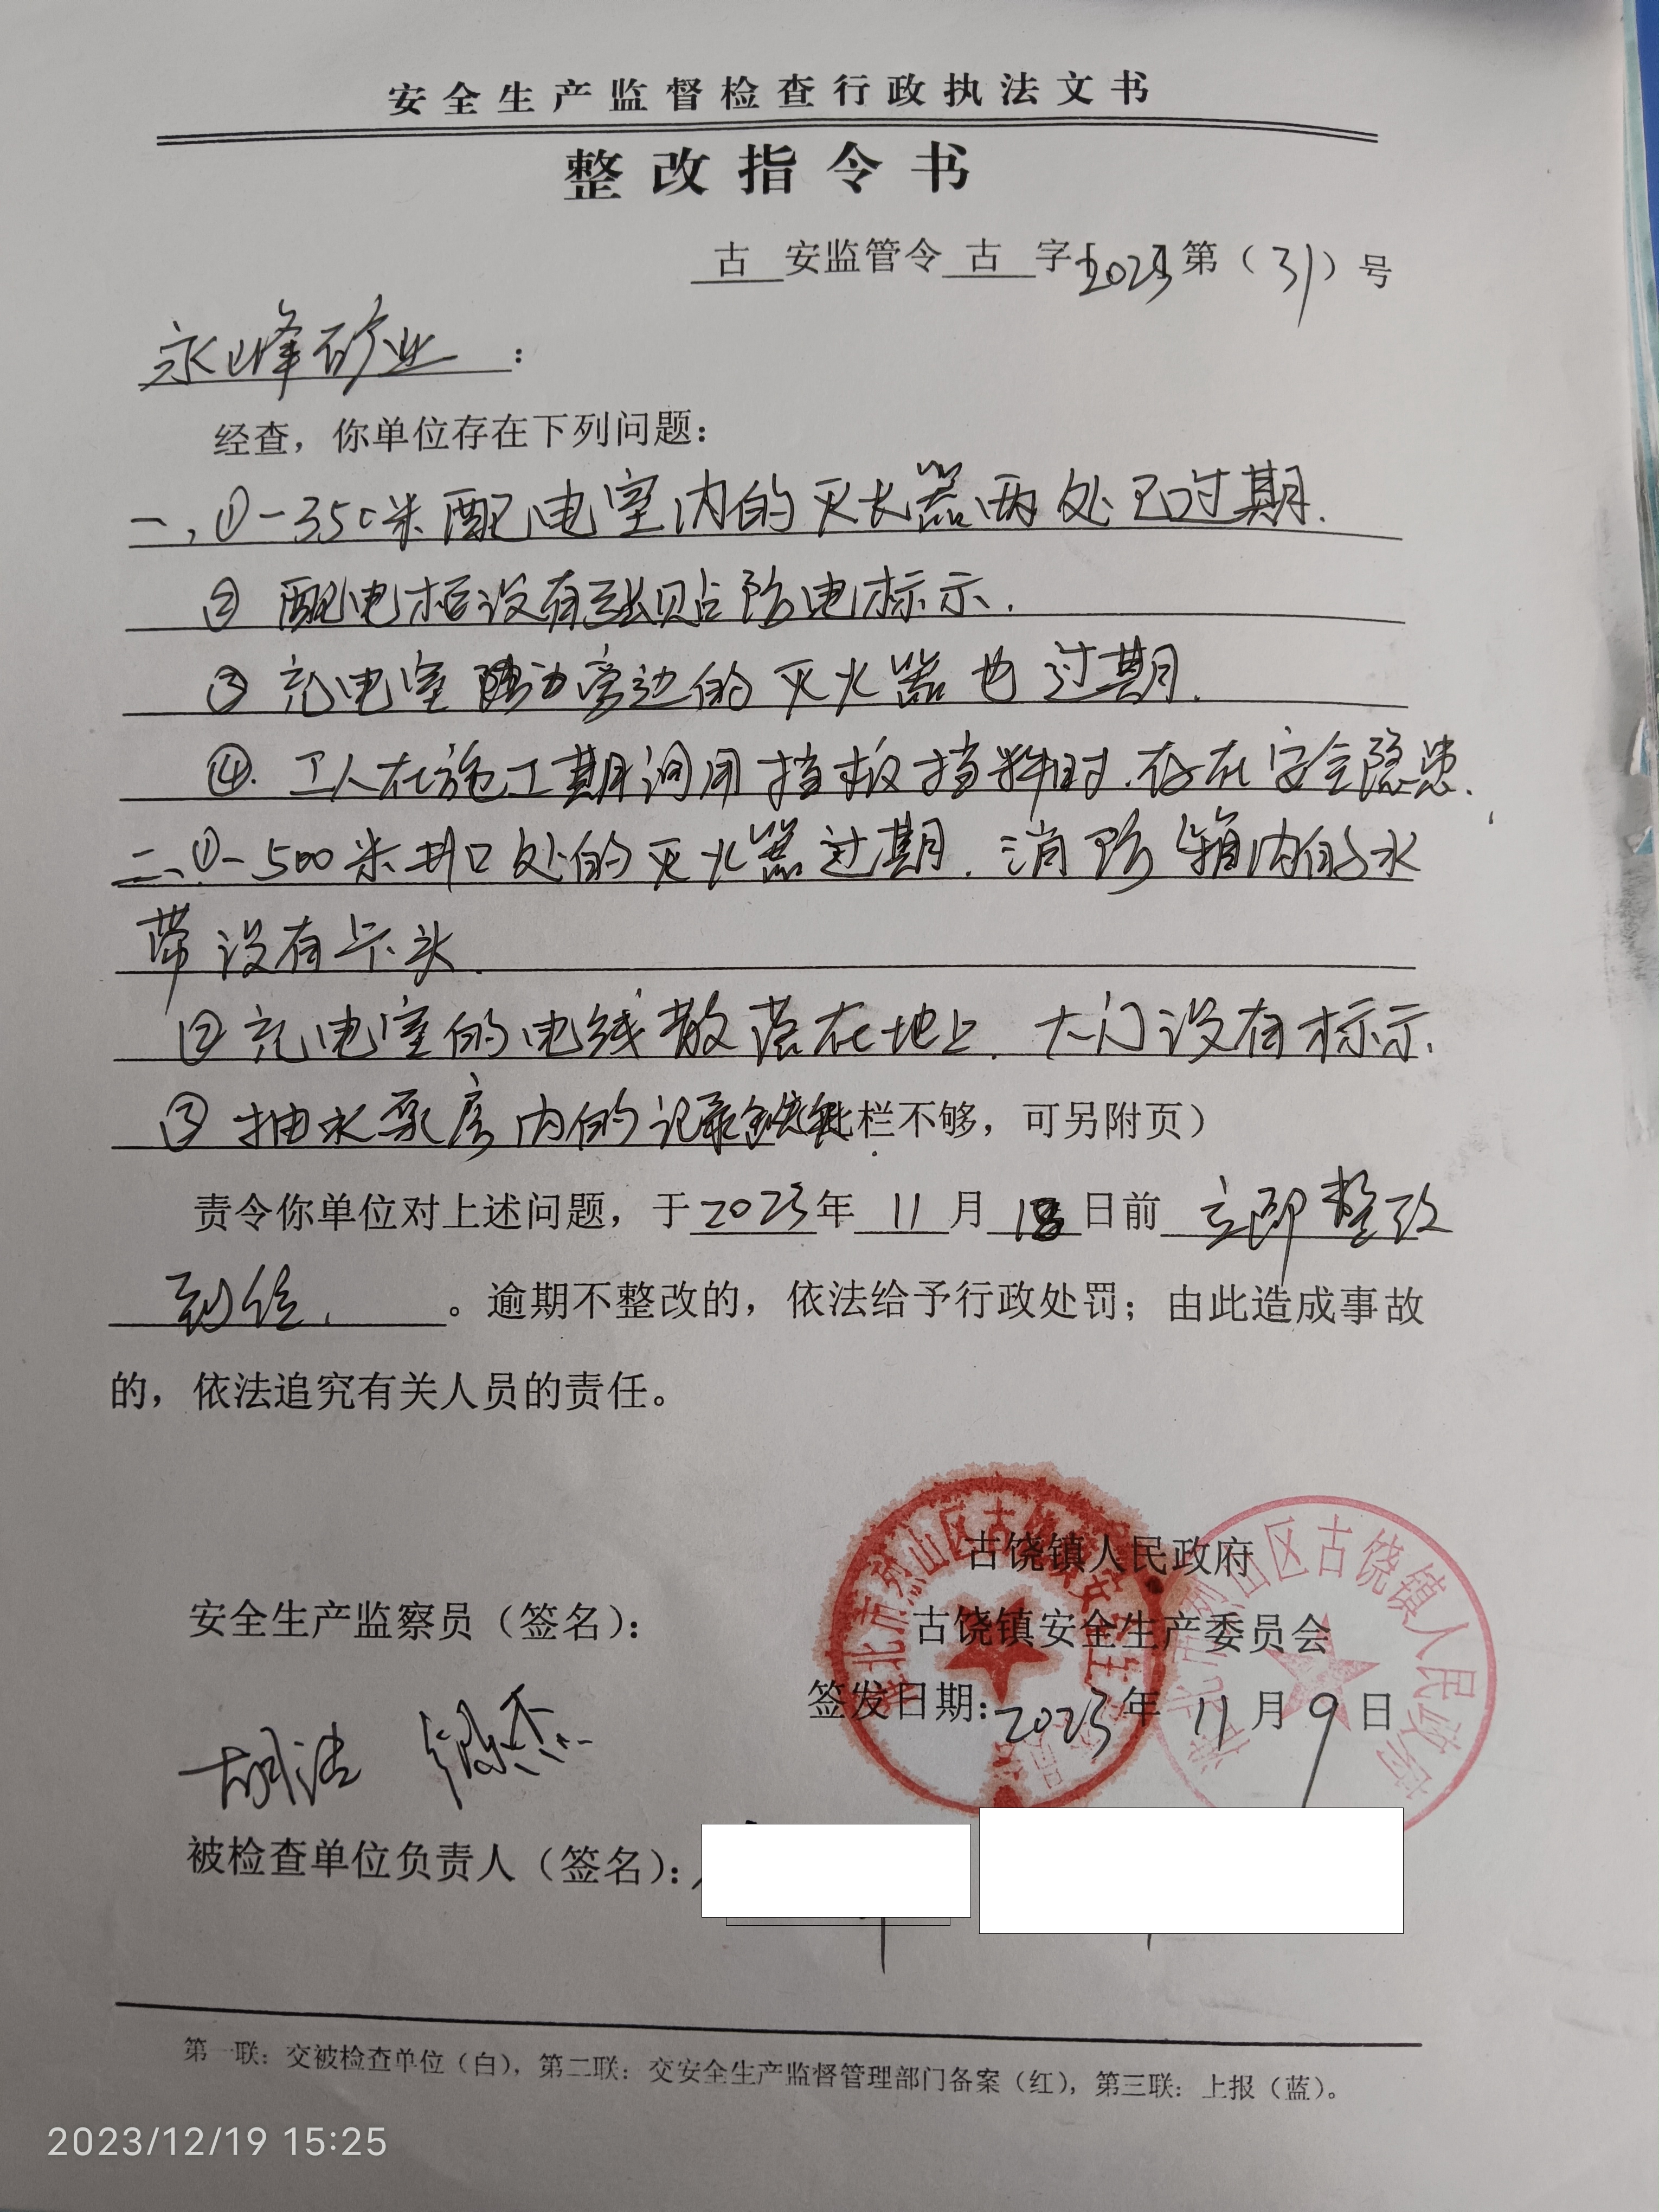 安全生产监督检查行政执法文书
整改指令书
古 安监管令 古 字[2023]第（31）号
永峰矿业：
经查，你单位存在下列问题：
一、①-350米配电室内的灭火器两处已过期.
② 配电柜没有张贴防电标示.
③ 充电室旁边的灭火器也过期.
④.工人在施工期间用挡板挡料时.存在安全隐患.
二、①-500米井口处的灭火器过期.消防箱内的水
带没有卡头.
②充电室的电线散落在地上.大门没有标示.
③抽水泵房内的记录 此栏不够，可另附页）
责令你单位对上述问题，于2023年 11 月 18 日前 立即整改
到位. 。逾期不整改的，依法给予行政处罚；由此造成事故
的，依法追究有关人员的责任。
古饶镇人民政府
安全生产监察员（签名）：
古饶镇安全生产委员会
签发日期：2023年 11 月 9 日
被检查单位负责人（签名）：
第一联：交被检查单位（白），第二联：交安全生产监督管理部门备案（红），第三联：上报（蓝）。
2023/12/19 15:25